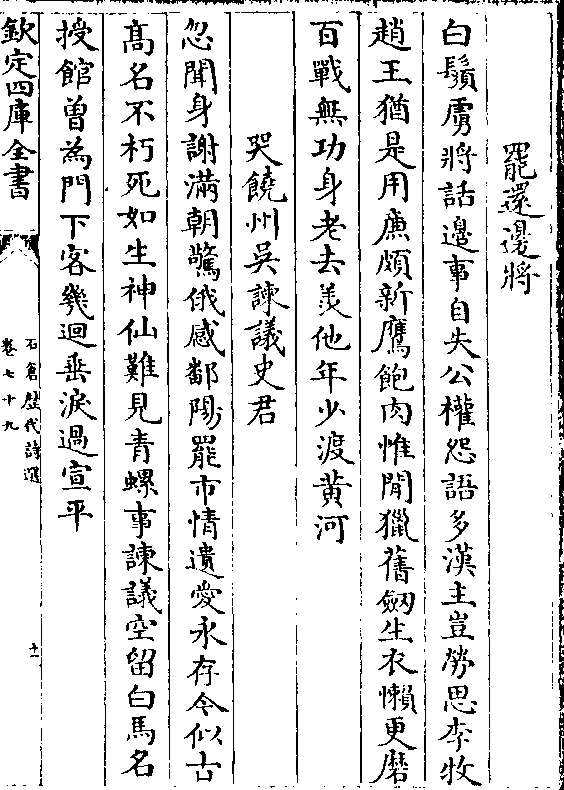 罷還邊將
白鬚虜將話邊事自失公權怨語多漢主豈勞思李牧
趙王猶是用廉頗新鷹飽肉惟閒獵舊劒生衣懶更磨
百戰無功身老去羨他年少渡黃河
哭饒州吳諫議史君
忽聞身謝滿朝驚俄感鄱陽罷市情遺愛永存今似古
髙名不朽死如生神仙難見青螺事諫議空留白馬名
授館曽為門下客幾迴垂淚過宣平
欽定四庫全書
石倉歷代詩選
卷七十九
十一